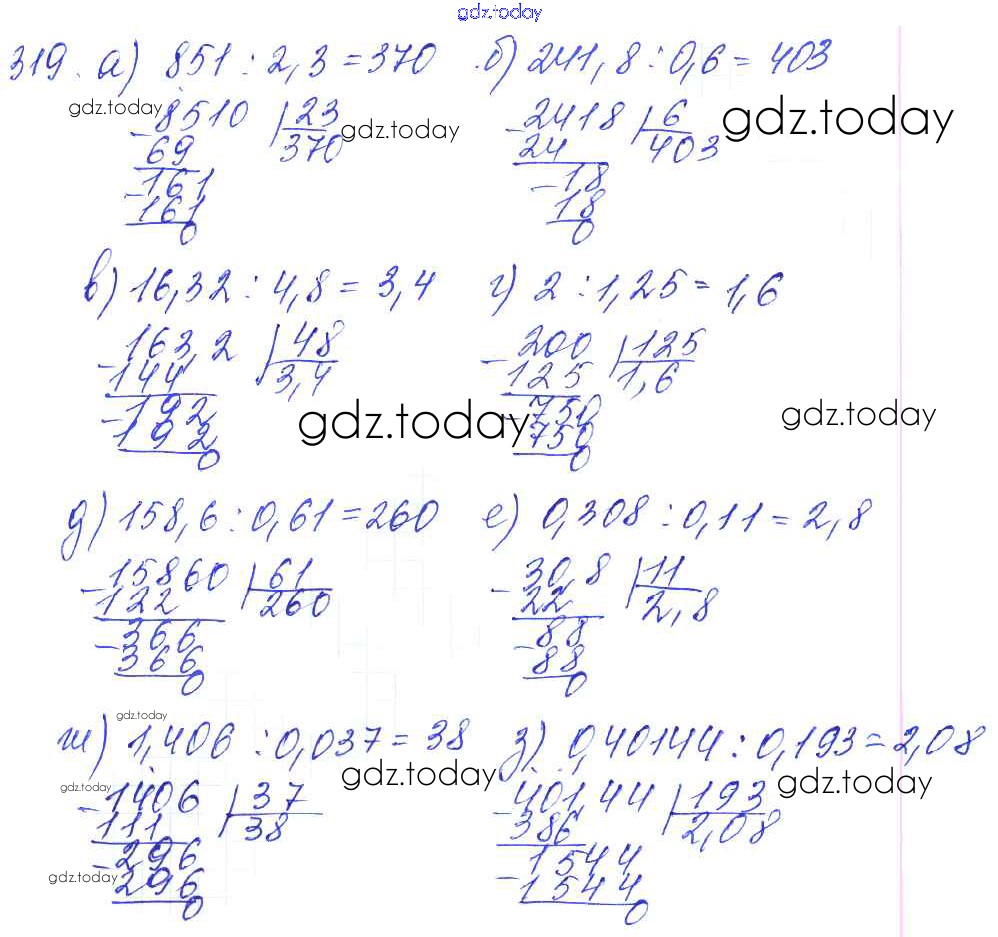 gdz.today
319. а) 851 : 2,3 = 370 б) 241,8 : 0,6 = 403
gdz.today -8510 23 gdz.today -2418 6 gdz.today
69 370 24 403
-161 -18
161 18
0 0
в) 16,32 : 4,8 = 3,4 г) 2 : 1,25 = 1,6
-163,2 48 -200 125
144 3,4 125 1,6
-192 gdz.today -750 gdz.today
192 750
0 0
д) 158,6 : 0,61 = 260 е) 0,308 : 0,11 = 2,8
-15860 61 -30,8 11
122 260 22 2,8
-366 -88
366 88
0 0
gdz.today
ж) 1,406 : 0,037 = 38 з) 0,40144 : 0,193 = 2,08
gdz.today gdz.today gdz.today
-1406 37 -401,44 193
111 38 386 2,08
-296 -1544
gdz.today 296 1544
0 0